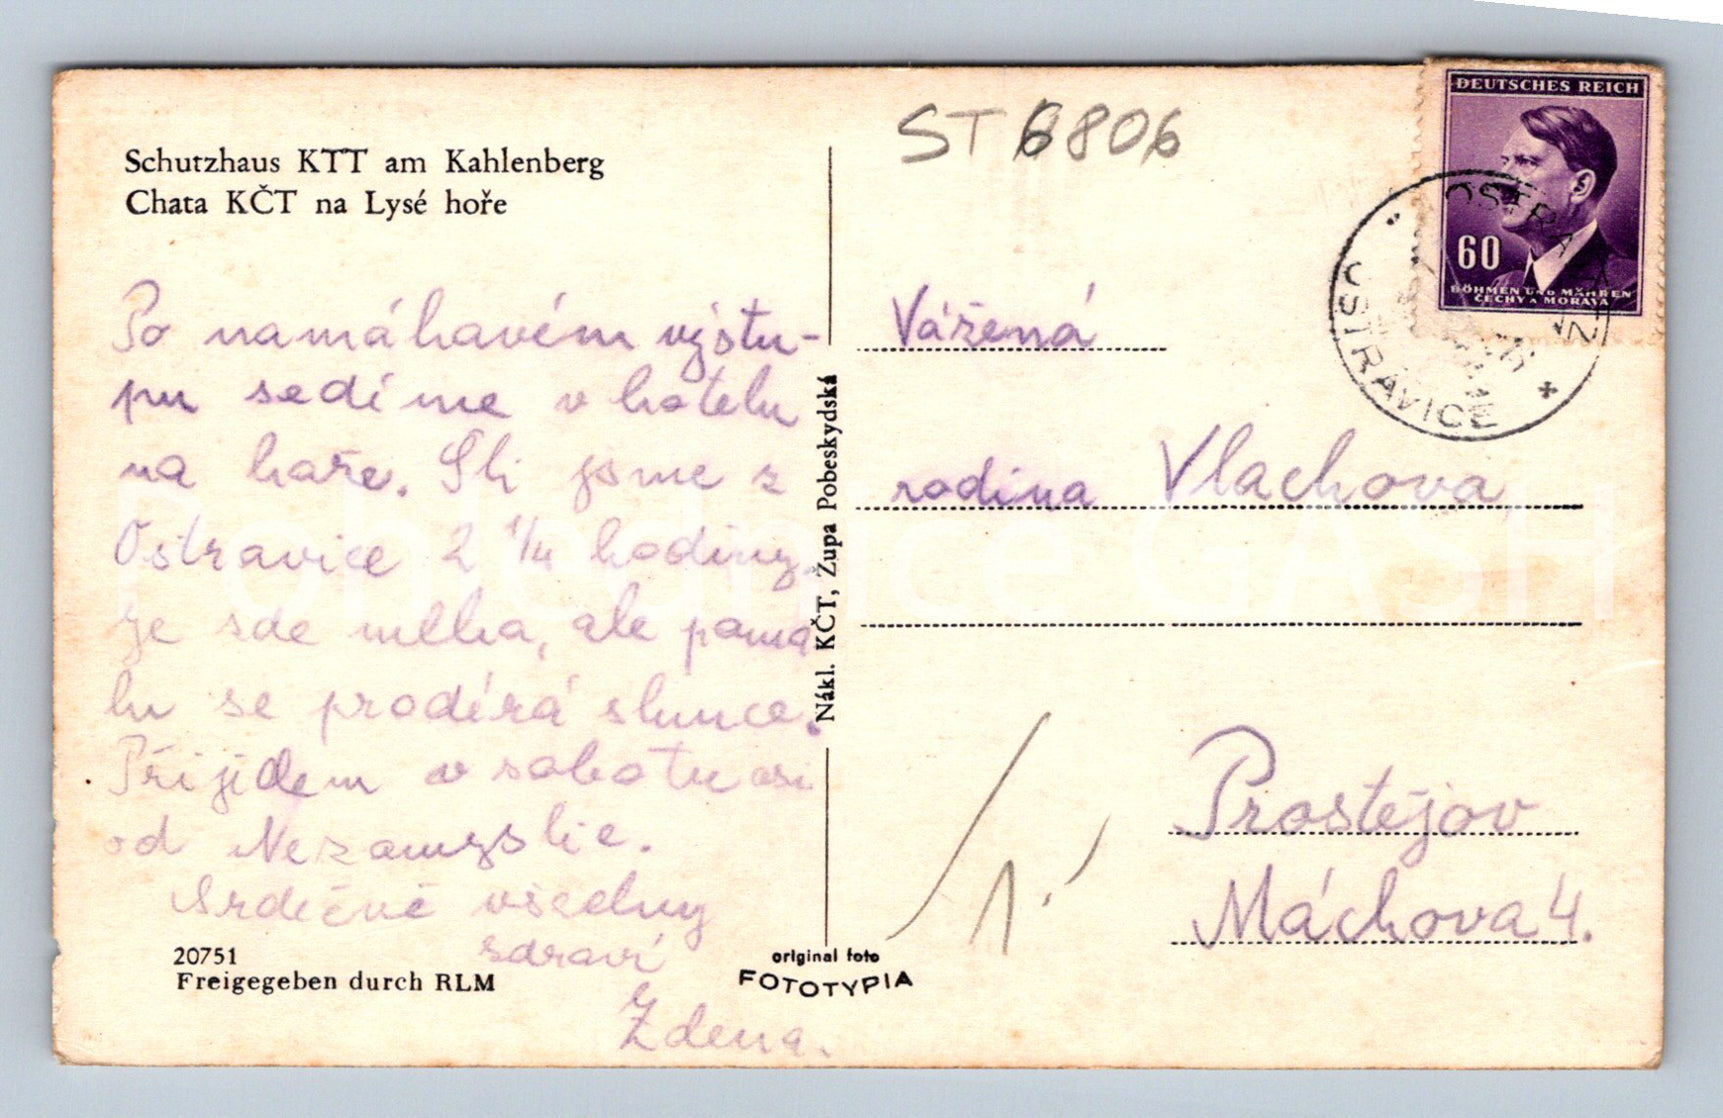 Schutzhaus KTT am Kahlenberg
Chata KČT na Lysé hoře
Po namáhavém výstu-
pu sedíme v hotelu
na hoře. Šli jsme z
Ostravice 2 1/4 hodiny.
Je zde mlha, ale poma
lu se prodírá slunce.
Přijedem v sobotu asi
od Nezamyslic.
Srdečně všechny
zdraví
Zdena.
20751
Freigegeben durch RLM
Nákl. KČT, Župa Pobeskydská
original foto
FOTOTYPIA
ST 6806
DEUTSCHES REICH
60
BÖHMEN UND MÄHREN
ČECHY A MORAVA
OSTRAWITZ
OSTRAVICE
Vážená
rodina Vlachova
Prostějov
Máchova 4.
Pohlednice GASH